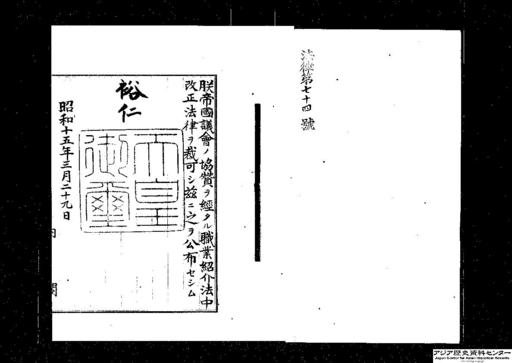 法律第七十四號
朕帝國議會ノ協贊ヲ經タル職業紹介法中
改正法律ヲ裁可シ茲ニ之ヲ公布セシム
裕仁
天皇
御璽
昭和十五年三月二十九日
內閣
アジア歴史資料センター
Japan Center for Asian Historical Records